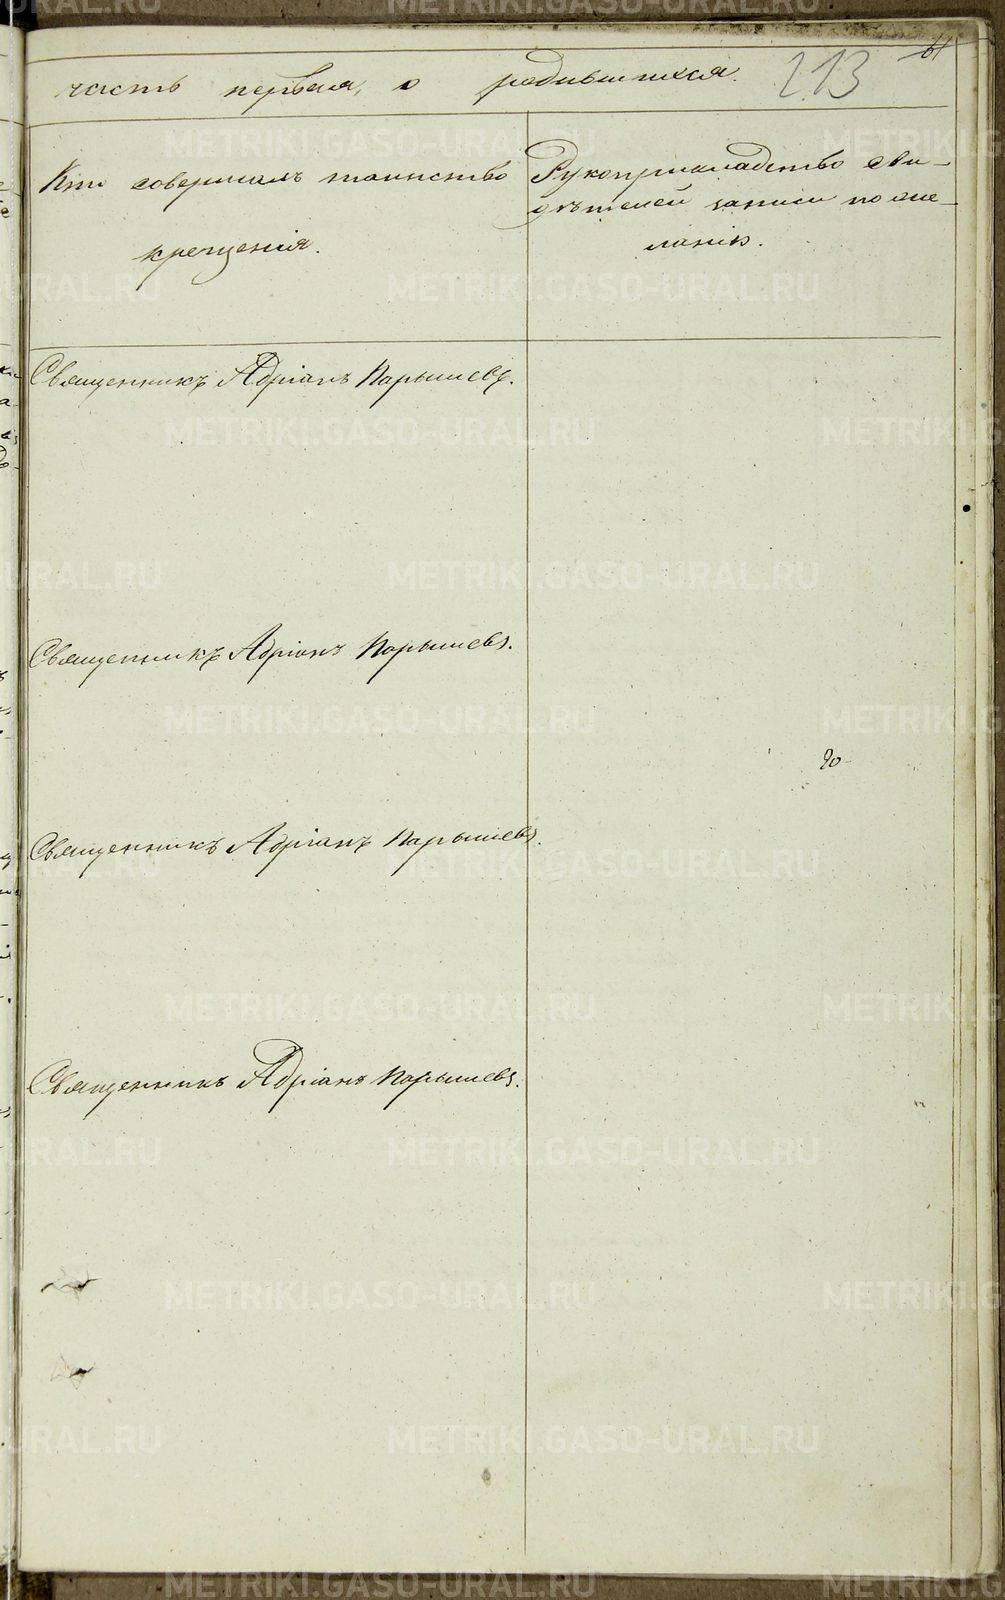 часть первая, о родившихся.
213
61
Кто совершалъ таинство
крещенія.
Рукоприкладство сви-
дѣтелей записи по же-
ланію.
Священникъ Адріанъ Парышевъ.
Священникъ Адріанъ Парышевъ.
Священникъ Адріанъ Парышевъ.
Священникъ Адріанъ Парышевъ.
METRIKI.GASO-URAL.RU